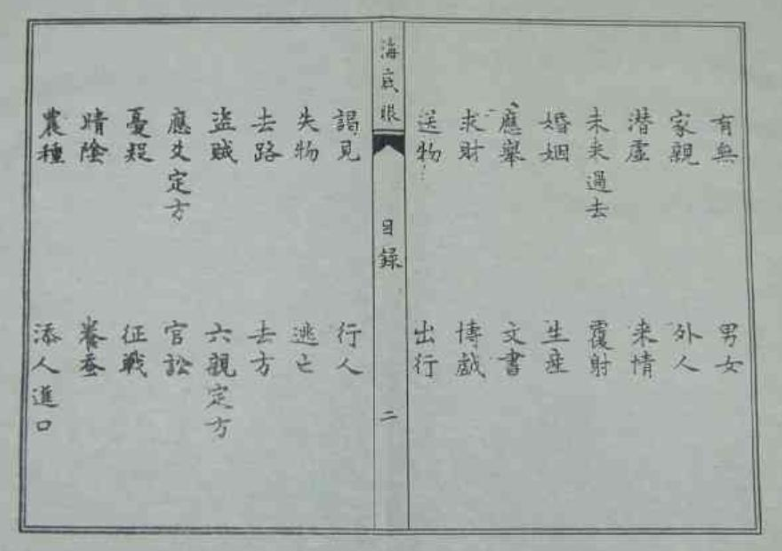 有無 男女
家親 外人
潛虛 来情
未来過去 覆射
婚姻 生産
應舉 文書
求財 博戯
送物 出行
海底眼 目録 二
謁見 行人
失物 逃亡
去路 去方
盗賊 六親定方
應爻定方 官訟
憂疑 征戰
晴陰 養蚕
農種 添人進口